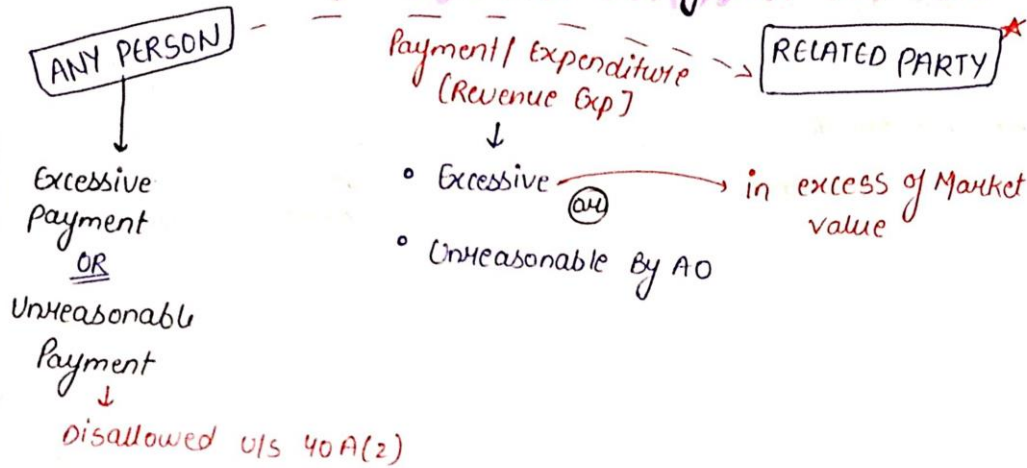 ANY PERSON
Payment/ Expenditure
[Revenue Exp]
RELATED PARTY
Excessive
Payment
OR
Unreasonable
Payment
Disallowed u/s 40A(2)
• Excessive
OR
in excess of Market
value
• Unreasonable By AO